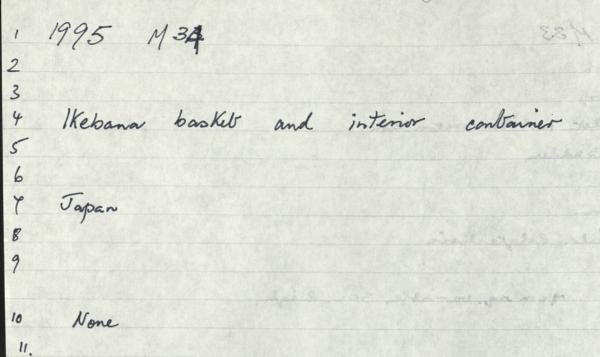 1 1995 M 34
2
3
4 Ikebana basket and interior container
5
6
7 Japan
8
9
10 None
11.